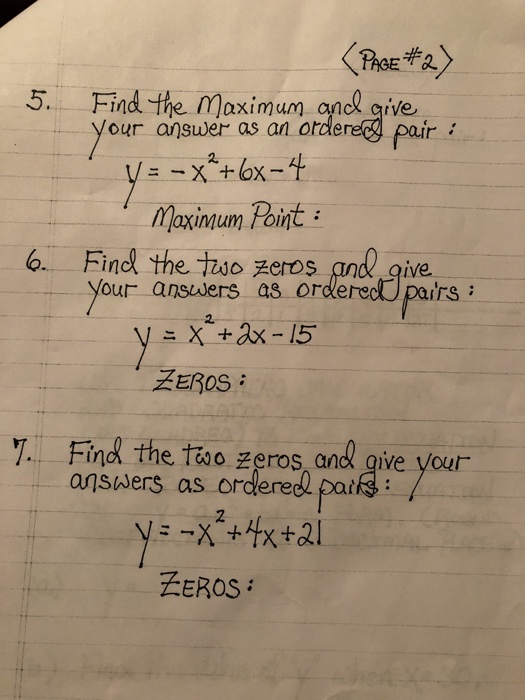 <PAGE #2>
5. Find the Maximum and give
your answer as an ordered pair :
y = -x²+6x-4
Maximum Point :
6. Find the two zeros and give
your answers as ordered pairs :
y = x²+2x-15
ZEROS :
7. Find the two zeros and give your
answers as ordered pairs :
y = -x²+4x+21
ZEROS :